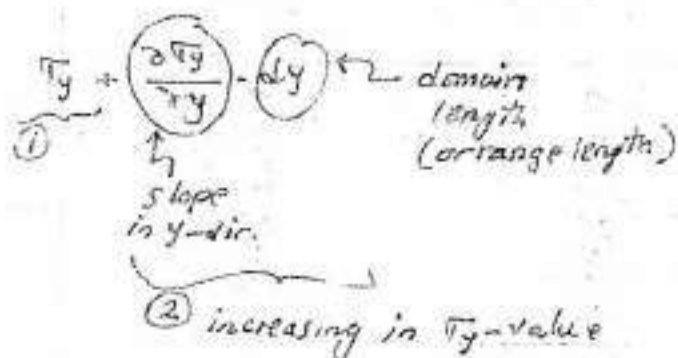 σy + ∂σy/∂y · dy
domain
length
(or range length)
①
slope
in y-dir.
② increasing in σy-value